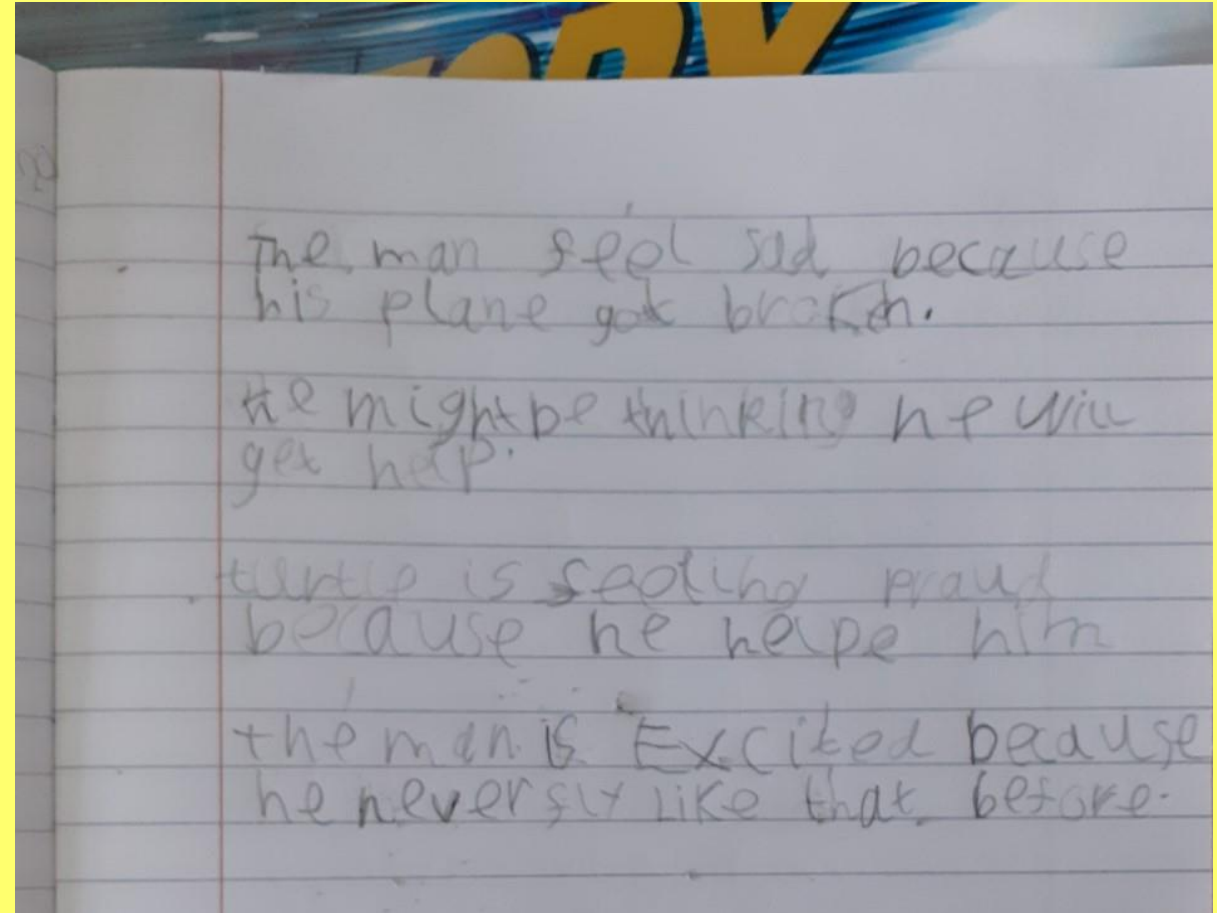 The man feel sad because
his plane got broken.
He might be thinking he will
get help.
turtle is feeling praud
because he helpe him
the man is Excited because
he never fly like that before.